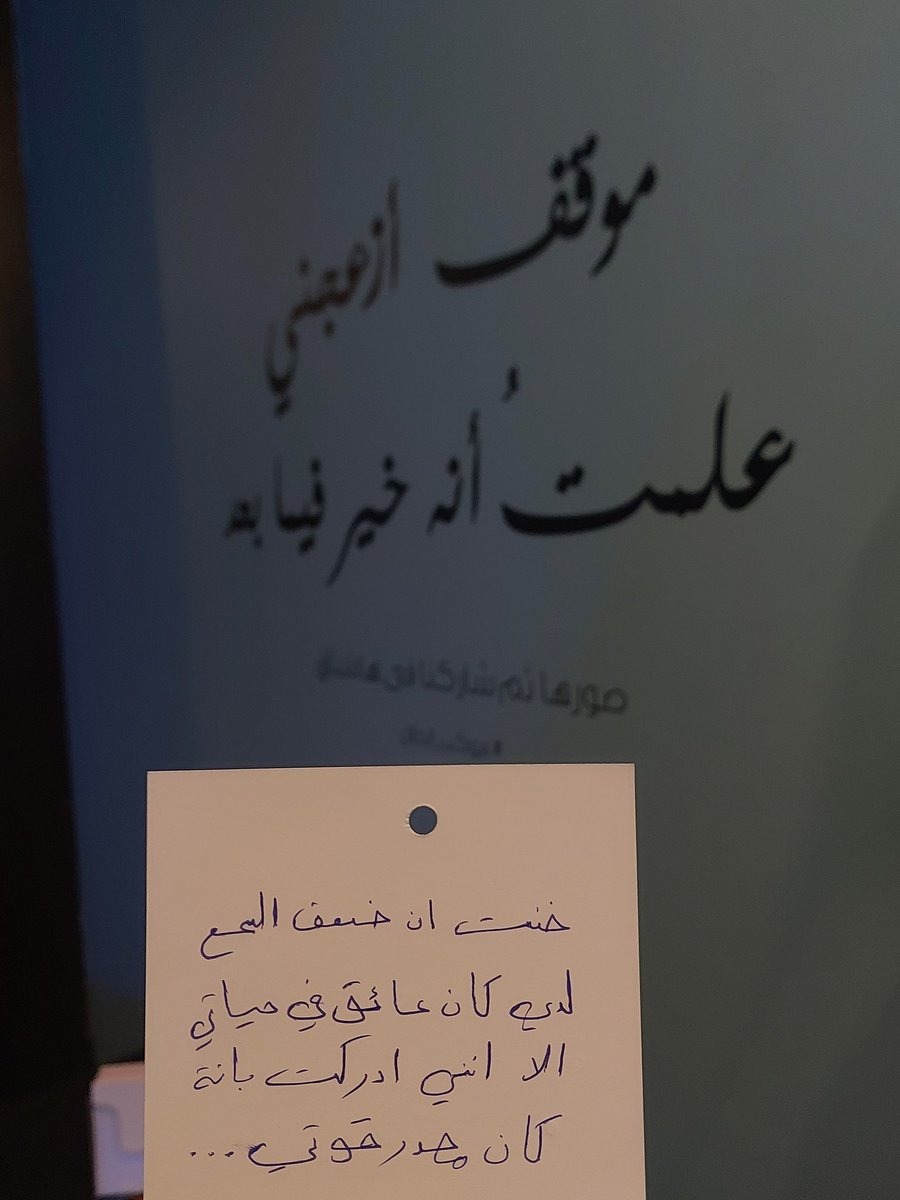 موقف أزعجني
علمتُ أنه خير فيما بعد
صورها ثم شاركنا في هاشتاق
ضنت ان ضعف السمع
لدي كان عائق في حياتي
الا انني ادركت بانة
كان مصدر قوتي...